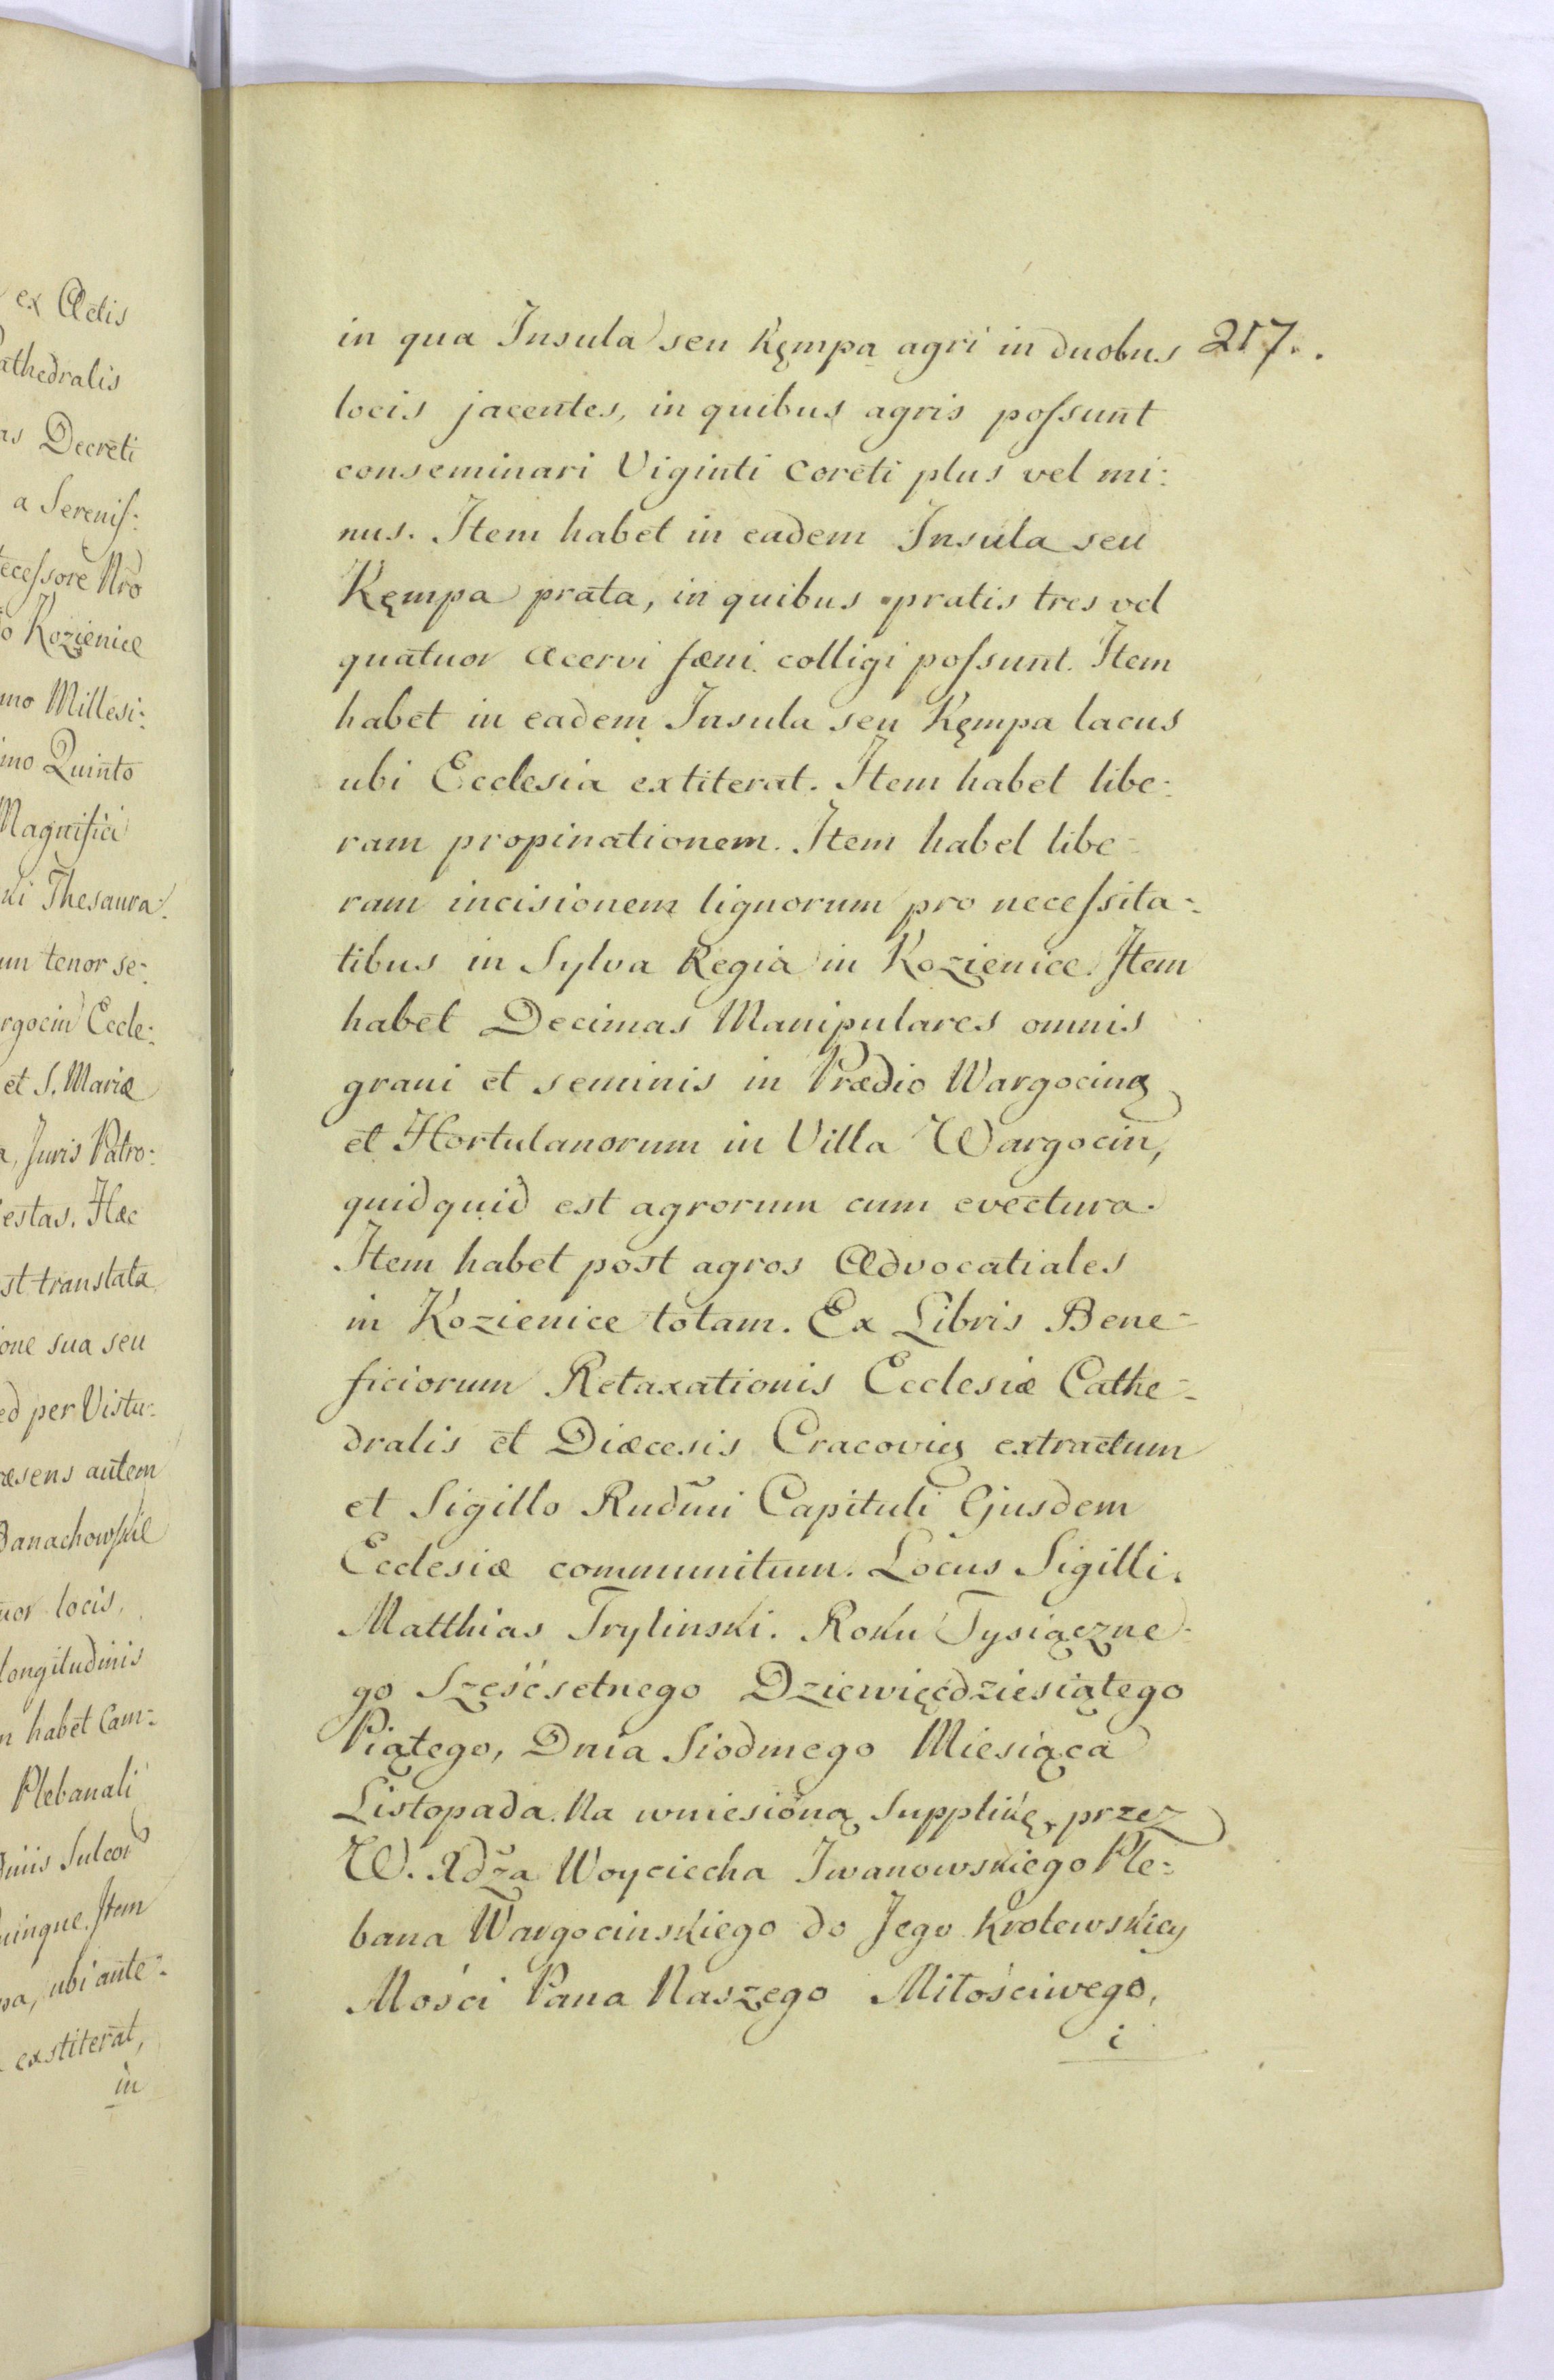 ex Actis
athedralis
as Decreti
a Sereniss:
ecessore Nro
o Kozienice
mo Millesi:
imo Quinto
Magnifici
ki Thesaura:
um tenor se:
rgocin Eccle:
et S. Mariæ
a, Juris Patro:
estas. Hæc
st translata
one sua seu
ed per Vistu:
æsens autem
Banachowskie
uor locis,
longitudinis
m habet Cam:
Plebanali
dinis Sulcor
uinque. Item
pa, ubi ante:
exstiterat,
in
in qua Insula seu Kęmpa agri in duobus 217.
locis jacentes, in quibus agris possunt
conseminari Viginti Coreti plus vel mi:
nus. Item habet in eadem Insula seu
Kęmpa prata, in quibus pratis tres vel
quatuor acervi fæni colligi possunt. Item
habet in eadem Insula seu Kęmpa lacus
ubi Ecclesia extiterat. Item habet libe:
ram propinationem. Item habet libe-
ram incisionem lignorum pro necessita:
tibus in Sylva Regia in Kozienice. Item
habet Decimas Manipulares omnis
grani et seminis in Prædio Wargocing
et Hortulanorum in Villa Wargocin,
quidquid est agrorum cum evectura.
Item habet post agros Advocatiales
in Kozienice totam. Ex Libris Bene-
ficiorum Retaxationis Ecclesiæ Cathe-
dralis et Diæcesis Cracovieñ extractum
et Sigillo Rudm̃i Capituli Ejusdem
Ecclesiæ communitum. Locus Sigilli.
Matthias Trylinski. Roku Tysiączne-
go Sześćsetnego Dziewięćdziesiątego
Piątego, Dnia Siodmego Miesiąca
Listopada. Na wniesioną Supplikę, przez
W. Xdza Woyciecha Iwanowskiego Ple:
bana Wargocinskiego do Jego Krolewskiey
Mości Pana Naszego Miłościwego,
i